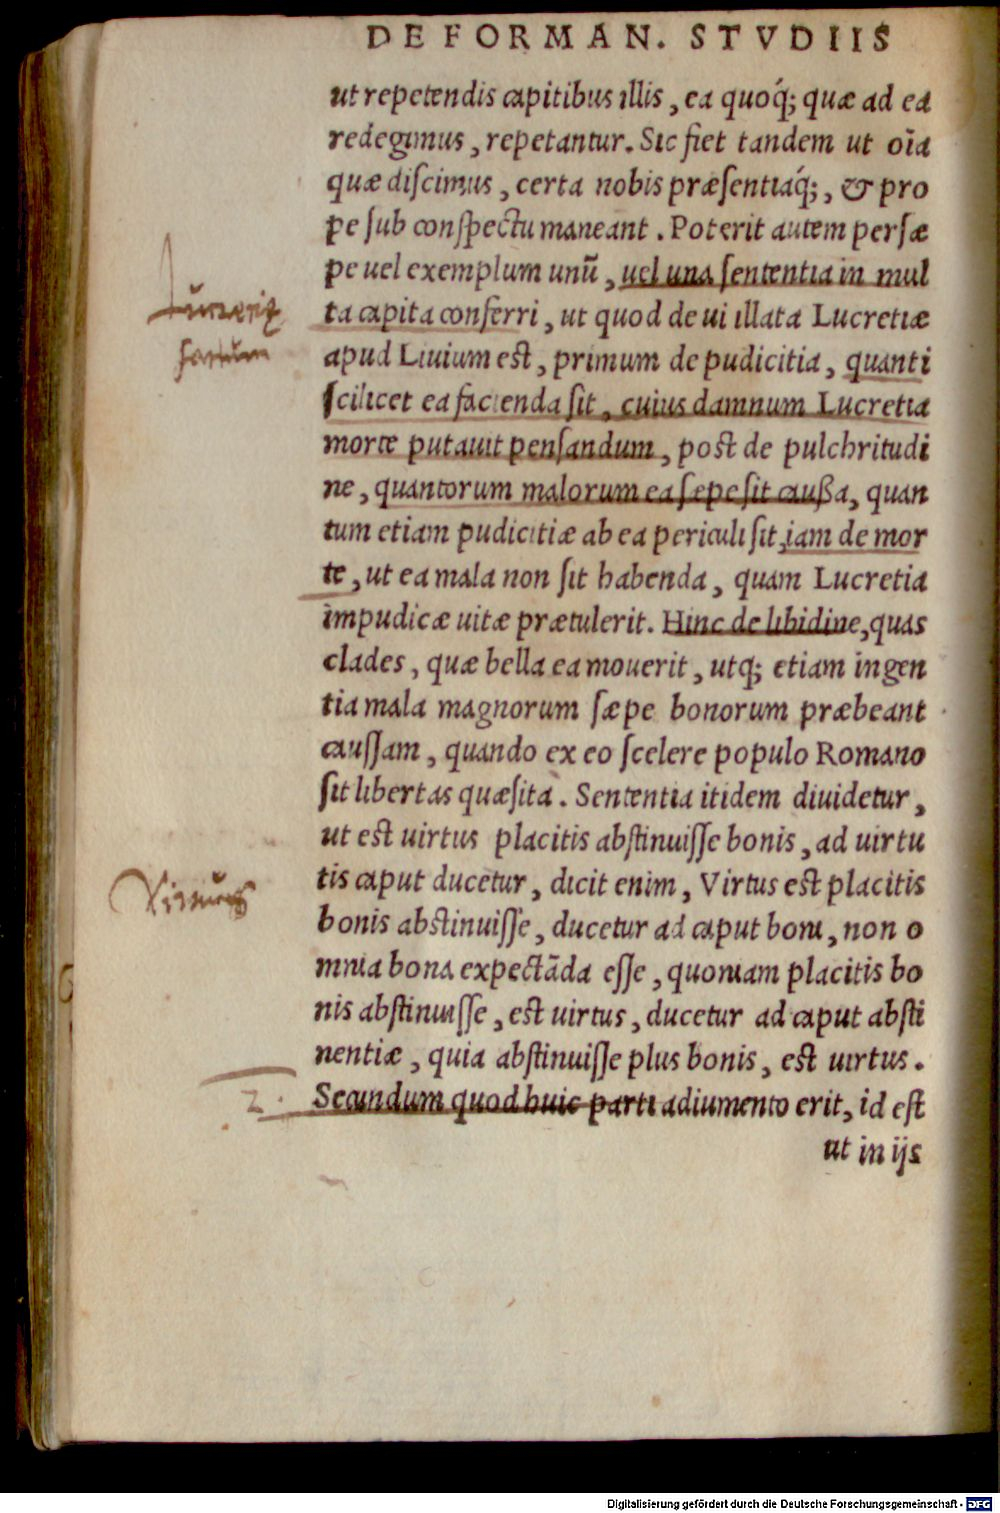 DE FORMAN. STVDIIS
ut repetendis capitibus illis, ea quoq́; quæ ad ea
redegimus, repetantur. Sic fiet tandem ut oĩa
quæ diſcimus, certa nobis præſentiaq́;, & pro
pe ſub conſpectu maneant. Poterit autem perſæ
pe uel exemplum unũ, uel una ſententia in mul
ta capita conferri, ut quod de ui illata Lucretiæ
apud Liuium est, primum de pudicitia, quanti
ſcilicet ea facienda ſit, cuius damnum Lucretia
morte putauit penſandum, post de pulchritudi
ne, quantorum malorum ea ſæpe ſit caußa, quan
tum etiam pudicitiæ ab ea periculi ſit, iam de mor
te, ut ea mala non ſit habenda, quam Lucretia
impudicæ uitæ prætulerit. Hinc de libidine, quas
clades, quæ bella ea mouerit, utq; etiam ingen
tia mala magnorum ſæpe bonorum præbeant
cauſſam, quando ex eo ſcelere populo Romano
ſit libertas quæſita. Sententia itidem diuidetur,
ut est uirtus placitis abſtinuiſſe bonis, ad uirtu
tis caput ducetur, dicit enim, Virtus est placitis
bonis abstinuiſſe, ducetur ad caput boni, non o
mnia bona expectãda eſſe, quoniam placitis bo
nis abſtinuiſſe, est uirtus, ducetur ad caput abſti
nentiæ, quia abſtinuiſſe plus bonis, est uirtus.
2.
Secundum quod huic parti adiumento erit, id eſt
ut in ijs
Digitalisierung gefördert durch die Deutsche Forschungsgemeinschaft - DFG